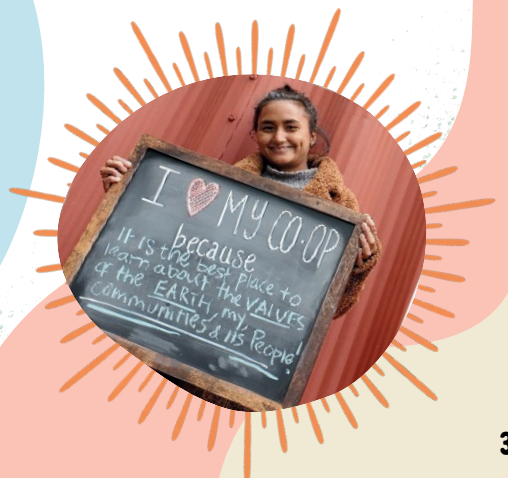 I ♥ MY CO-OP
because
It is the best place to
learn about the VALUES
of the EARTH, my
communities & its People!
3